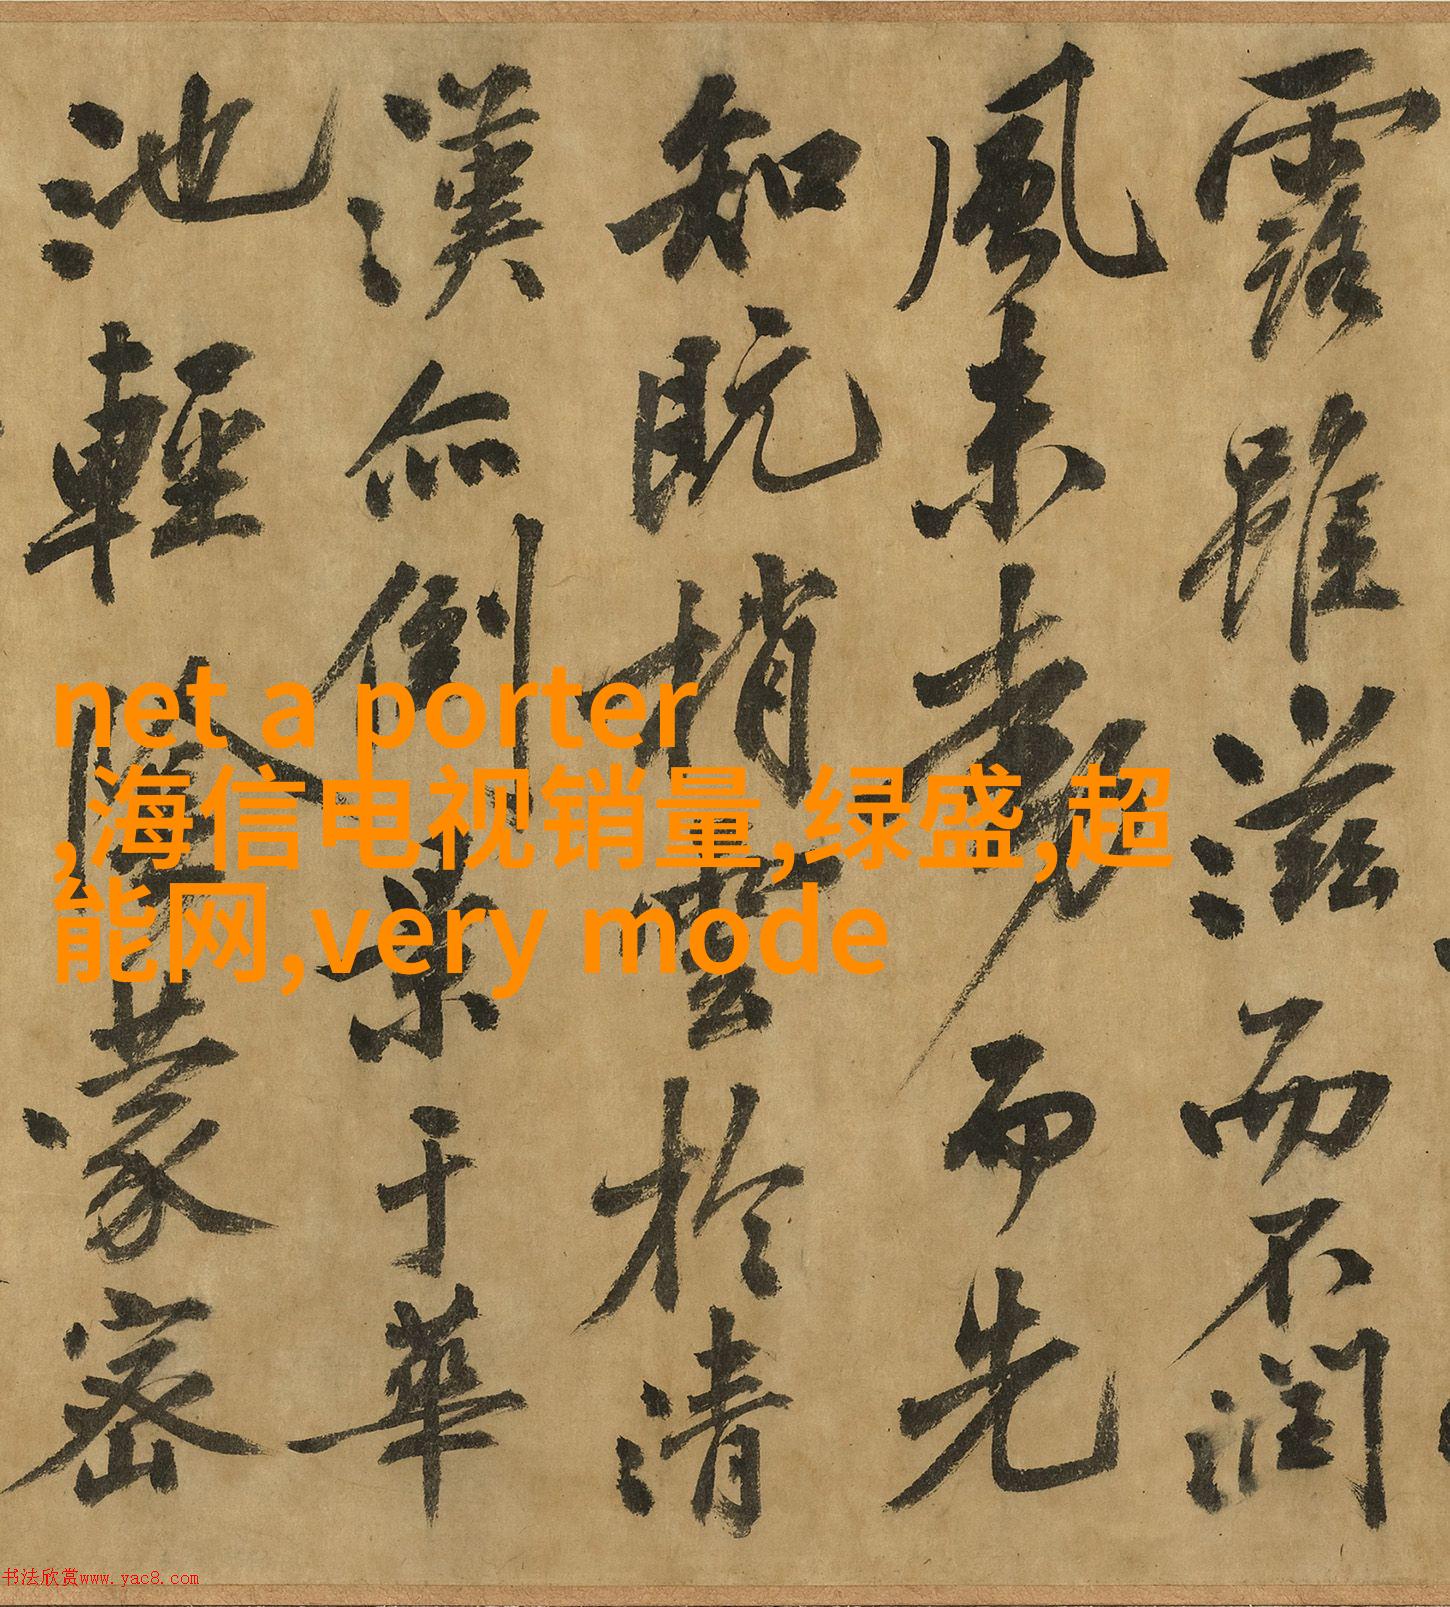 露雖滋而不潤
風未動而先
知既梢雲於清
漢亦倒景于華
池輕陰蒙密
net a porter
,海信电视销量,绿盛,超
能网,very mode
书法欣赏www.yac8.com